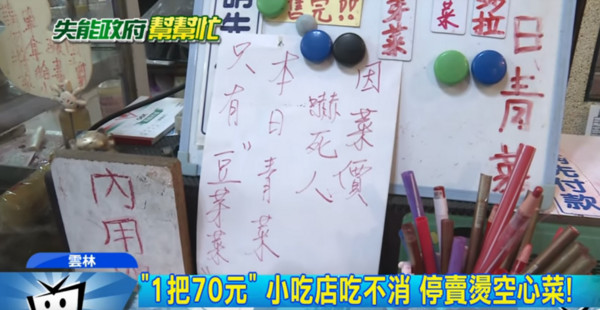 失能政府 幫幫忙
售完!!
芽菜
菜
日青菜
因菜價
嚇死人
本日青菜
只有"豆芽菜"
內用
雲林
"1把70元" 小吃店吃不消 停賣燙空心菜!